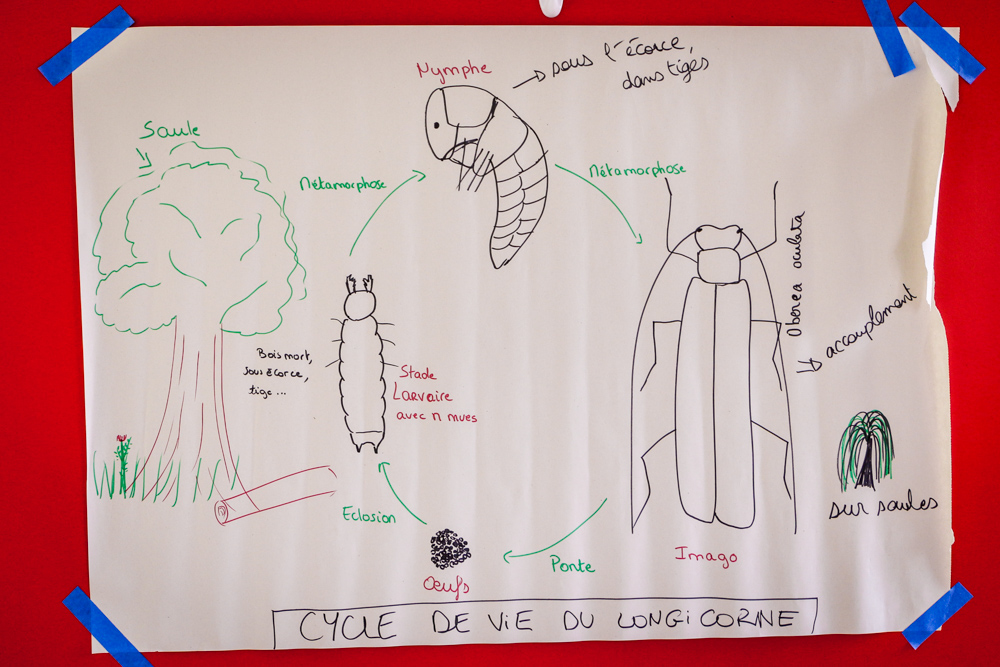 Nymphe
sous l'écorce,
dans tiges
Saule
Métamorphose
Métamorphose
Oberea oculata
accouplement
Bois mort,
sous écorce,
tige ...
Stade
Larvaire
avec n mues
sur saules
Eclosion
Imago
Ponte
Œufs
CYCLE DE ViE DU LONGiCORNE